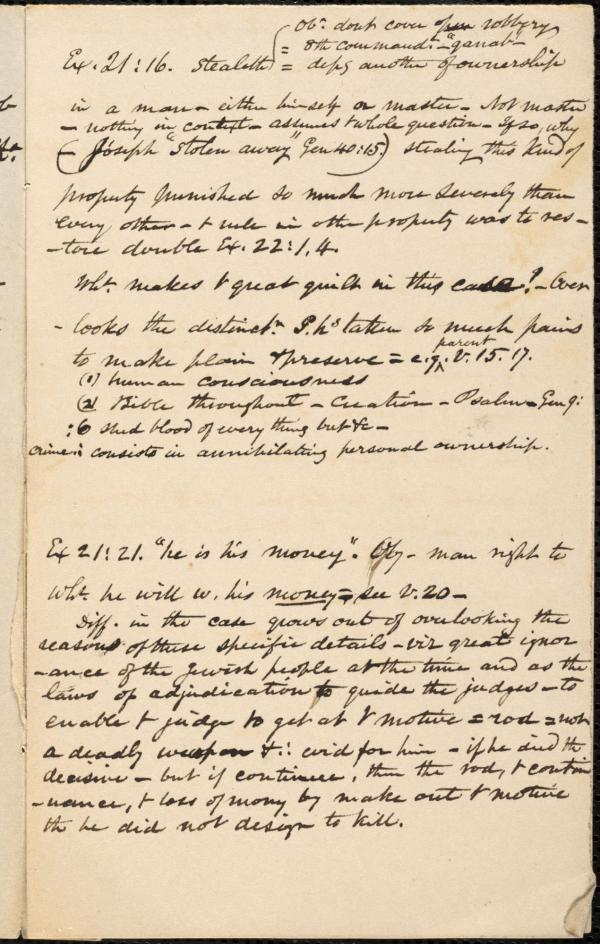 Obj. dont cover robbery
= 8th command: - "ganab"
Ex. 21:16. Stealeth = depg another of ownership
in a man - either himself or master - Not master
- nothing in "context - assumes t whole question - If so, why
(- Joseph "Stolen away" Gen 40:15.) stealing this kind of
property punished so much more severely than
every other - t rule in othr property was to res-
-tore double Ex. 22:1,4.
Wht. makes t great guilt in this case? - Over
- looks the distinctn P. hs taken so much pains
to make plain & preserve = e.g. parent V. 15. 17.
(1) human consciousness
(2) Bible throughout - Creation - Psalm - Gen 9:
:6 shed blood of every thing but &c -
crime :: consists in annihilating personal ownership.
Ex 21:21. "he is his money". Obj - man right to
wht. he will w. his money = see V. 20 -
Diff. in the case grows out of overlooking the
reasons of these specific details - viz great ignor
-ance of the Jewish people at the time and as the
laws of adjudication to guide the judges - to
enable t judge to get at t motive = rod = not
a deadly weapon & :: evid for him - if he died th
decisive - but if continuee, then the rod, t contin
-uance, t loss of mony by make out t motive
tht he did not design to kill.